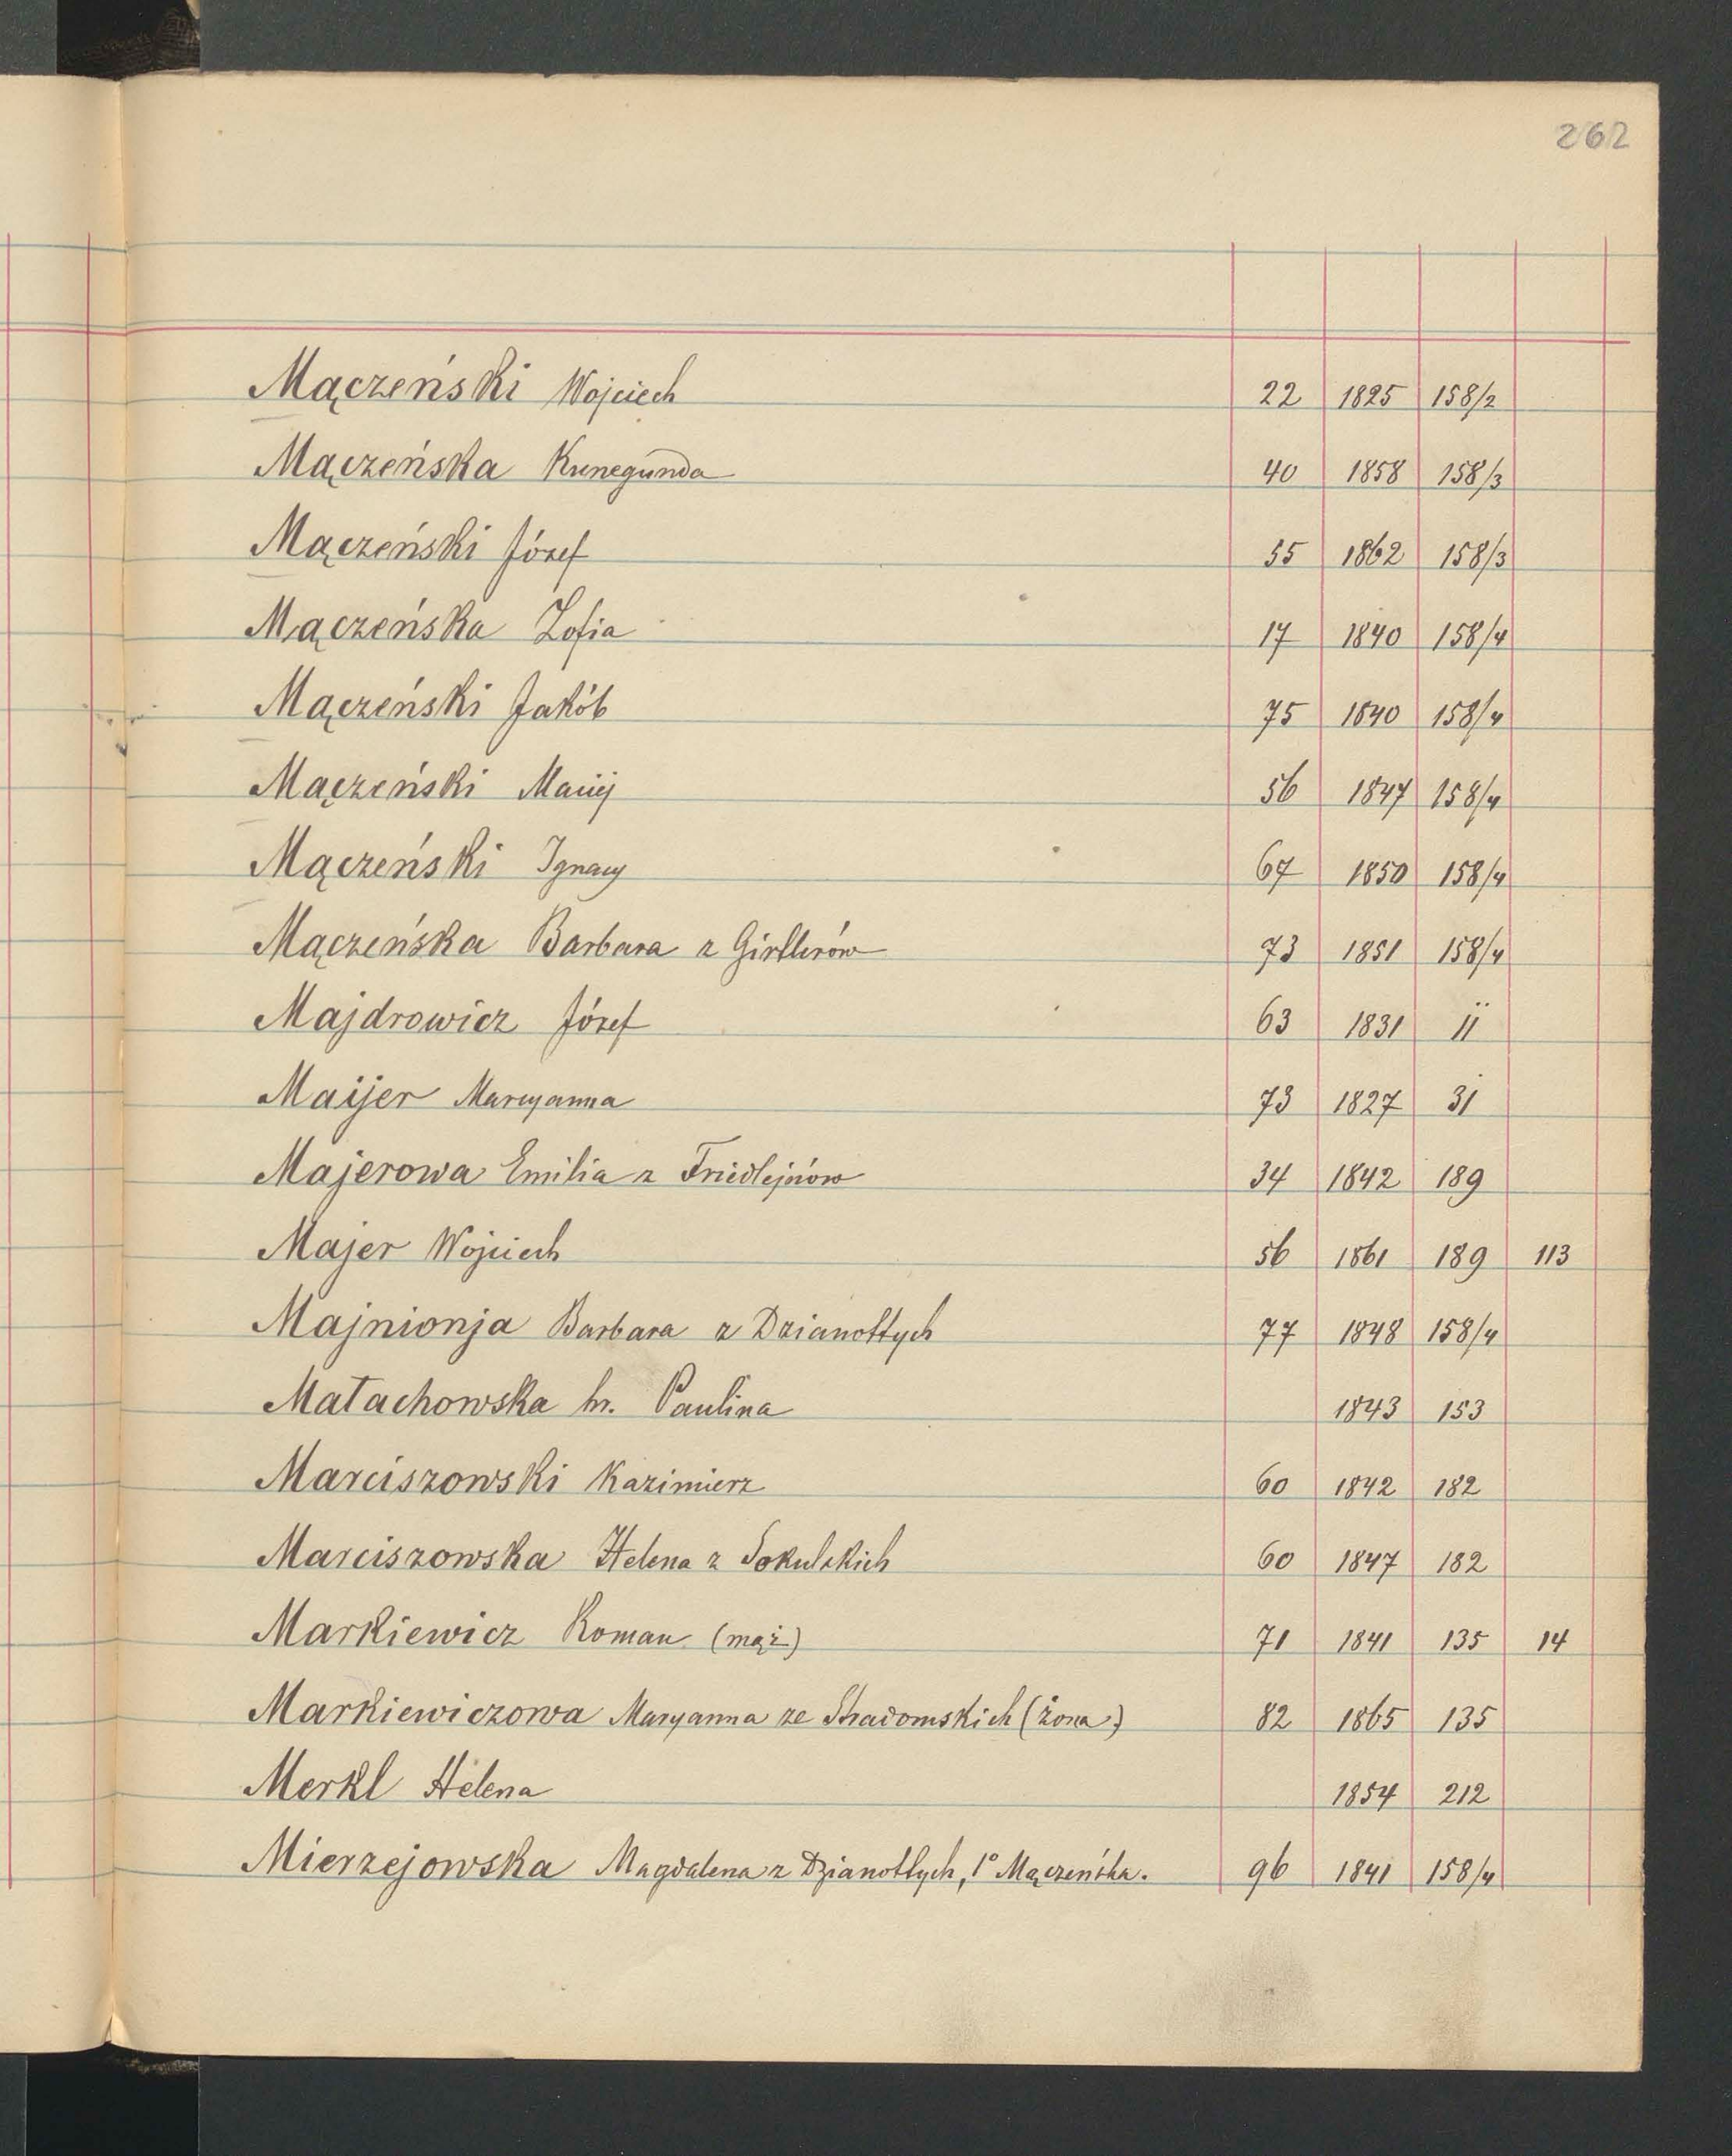 262
Mączeński Wojciech 22 1825 158/2
Mączeńska Kunegunda 40 1858 158/3
Mączeński Józef 55 1862 158/3
Mączeńska Zofia 17 1840 158/4
Mączeński Jakób 75 1840 158/4
Mączeński Maciej 56 1847 158/4
Mączeński Ignacy 67 1850 158/4
Mączeńska Barbara z Girtlerów 73 1851 158/4
Majdrowicz Józef 63 1831 11
Maijer Maryanna 73 1827 31
Majerowa Emilia z Friedlejnów 34 1842 189
Majer Wojciech 56 1861 189 113
Majnionja Barbara z Dzianottych 77 1848 158/4
Małachowska hr. Paulina 1843 153
Marciszowski Kazimierz 60 1842 182
Marciszowska Helena z Sokulskich 60 1847 182
Markiewicz Roman (mąż) 71 1841 135 14
Markiewiczowa Maryanna ze Stradomskich (żona) 82 1865 135
Merkl Helena 1854 212
Mierzejowska Magdalena z Dzianottych, 1° Mączeńska. 96 1841 158/4